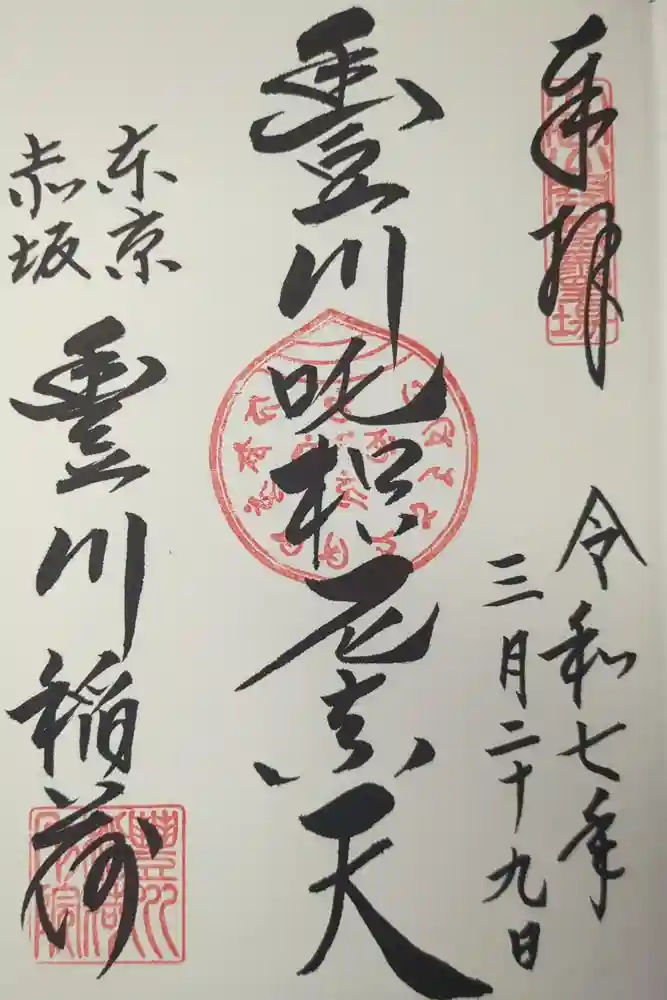 奉拝
令和七年
三月二十九日
豐川吒枳尼真天
東京
赤坂
豐川稲荷